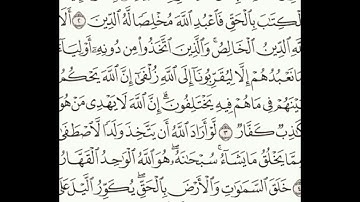 ٱلْكِتَٰبَ بِٱلْحَقِّ فَٱعْبُدِ ٱللَّهَ مُخْلِصًا لَّهُ ٱلدِّينَ ٢ أَلَا
لِلَّهِ ٱلدِّينُ ٱلْخَالِصُ ۚ وَٱلَّذِينَ ٱتَّخَذُوا۟ مِن دُونِهِۦٓ أَوْلِيَآءَ
مَا نَعْبُدُهُمْ إِلَّا لِيُقَرِّبُونَآ إِلَى ٱللَّهِ زُلْفَىٰٓ إِنَّ ٱللَّهَ يَحْكُمُ
بَيْنَهُمْ فِى مَا هُمْ فِيهِ يَخْتَلِفُونَ ۗ إِنَّ ٱللَّهَ لَا يَهْدِى مَنْ هُوَ
كَٰذِبٌ كَفَّارٌ ٣ لَّوْ أَرَادَ ٱللَّهُ أَن يَتَّخِذَ وَلَدًا لَّٱصْطَفَىٰ
مِمَّا يَخْلُقُ مَا يَشَآءُ ۚ سُبْحَٰنَهُۥ ۖ هُوَ ٱللَّهُ ٱلْوَٰحِدُ ٱلْقَهَّارُ
٤ خَلَقَ ٱلسَّمَٰوَٰتِ وَٱلْأَرْضَ بِٱلْحَقِّ ۖ يُكَوِّرُ ٱلَّيْلَ عَلَى